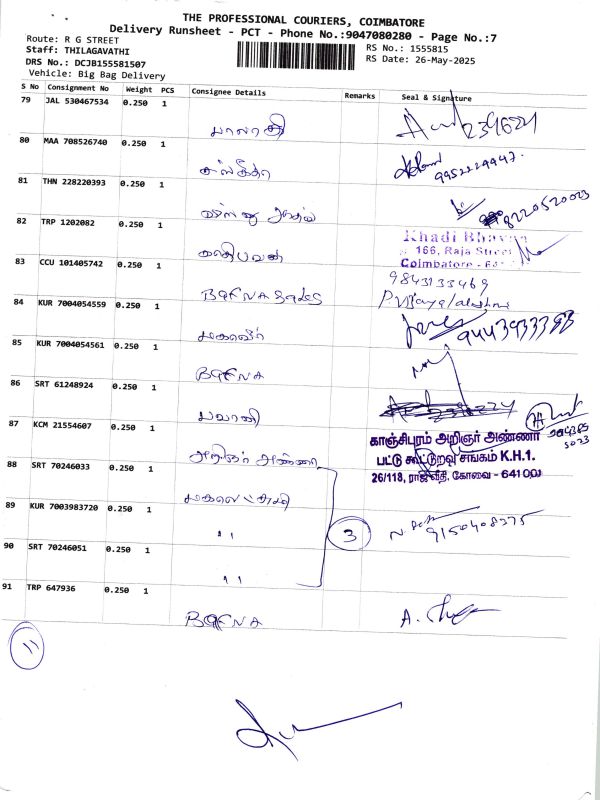 THE PROFESSIONAL COURIERS, COIMBATORE
Delivery Runsheet - PCT - Phone No.:9047080280 - Page No.:7
Route: R G STREET
Staff: THILAGAVATHI
RS No.: 1555815
DRS No.: DCJB155581507
RS Date: 26-May-2025
Vehicle: Big Bag Delivery
S No Consignment No Weight PCS Consignee Details Remarks Seal & Signature
79 JAL 530467534 0.250 1
80 MAA 708526740 0.250 1
9952229947.
81 THN 228220393 0.250 1
8220520023
82 TRP 1202082 0.250 1
Khadi Bhavan
166, Raja Street
Coimbatore - 641
83 CCU 101405742 0.250 1
9843133469
84 KUR 7004054559 0.250 1
மகாவீர்
9443933388
85 KUR 7004054561 0.250 1
BAFNA
86 SRT 61248924 0.250 1
பவானி
87 KCM 21554607 0.250 1
அறிஞர் அண்ணா
காஞ்சிபுரம் அறிஞர் அண்ணா
பட்டு கூட்டுறவு சங்கம் K.H.1.
26/118, ராஜவீதி, கோவை - 641001
88 SRT 70246033 0.250 1
89 KUR 7003983720 0.250 1
" 3 9150408375
90 SRT 70246051 0.250 1
"
91 TRP 647936 0.250 1
BAFNA
11